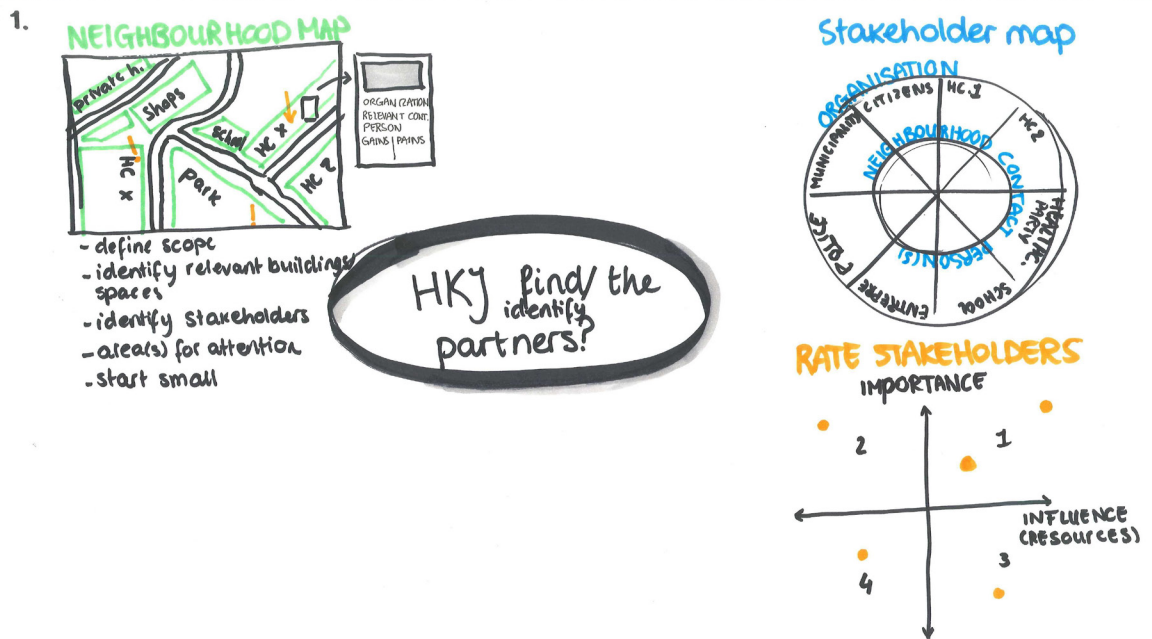 1.
NEIGHBOURHOOD MAP
private h.
Shops
school
HC X
HC X
Park
HC 2
ORGANIZATION
RELEVANT CONT.
PERSON
GAINS | PAINS
- define scope
- identify relevant buildings/
spaces
- identify stakeholders
- area(s) for attention
- start small
HKJ find/ the
identify
partners?
Stakeholder map
ORGANISATION
NEIGHBOURHOOD CONTACT PERSON(S)
CITIZENS
HC.1
HC 2
HEALTHC.
PARTY
SCHOOL
ENTREPRE
POLICE
MUNICIPALITY
RATE STAKEHOLDERS
IMPORTANCE
2
1
INFLUENCE
(RESOURCES)
3
4